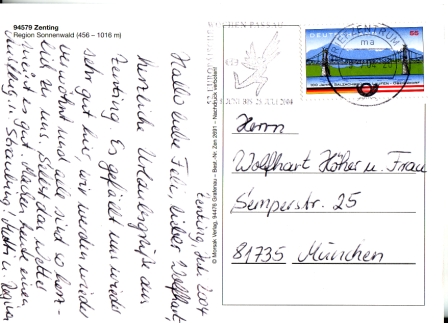 94579 Zenting
Region Sonnenwald (456 – 1016 m)
Zenting, Juli 2004
Hallo liebe Feli, lieber Wolfhart,
herzliche Urlaubsgrüße aus
Zenting. Es gefällt uns wieder
sehr gut hier, wir werden wieder
verwöhnt und alle sind so herz-
lich zu uns. Selbst das Wetter
meint es gut. Machen heute einen
Ausflug n. Straubing!
© Morsak Verlag, 94476 Grafenau – Best.-Nr. Zen 2691 – Nachdruck verboten!
PASSAU
JULI 2004
BRIEFZENTRUM
ma
DEUTSCHLAND
55
Herrn
Wolfhart Höher u. Frau
Semperstr. 25
81735 München